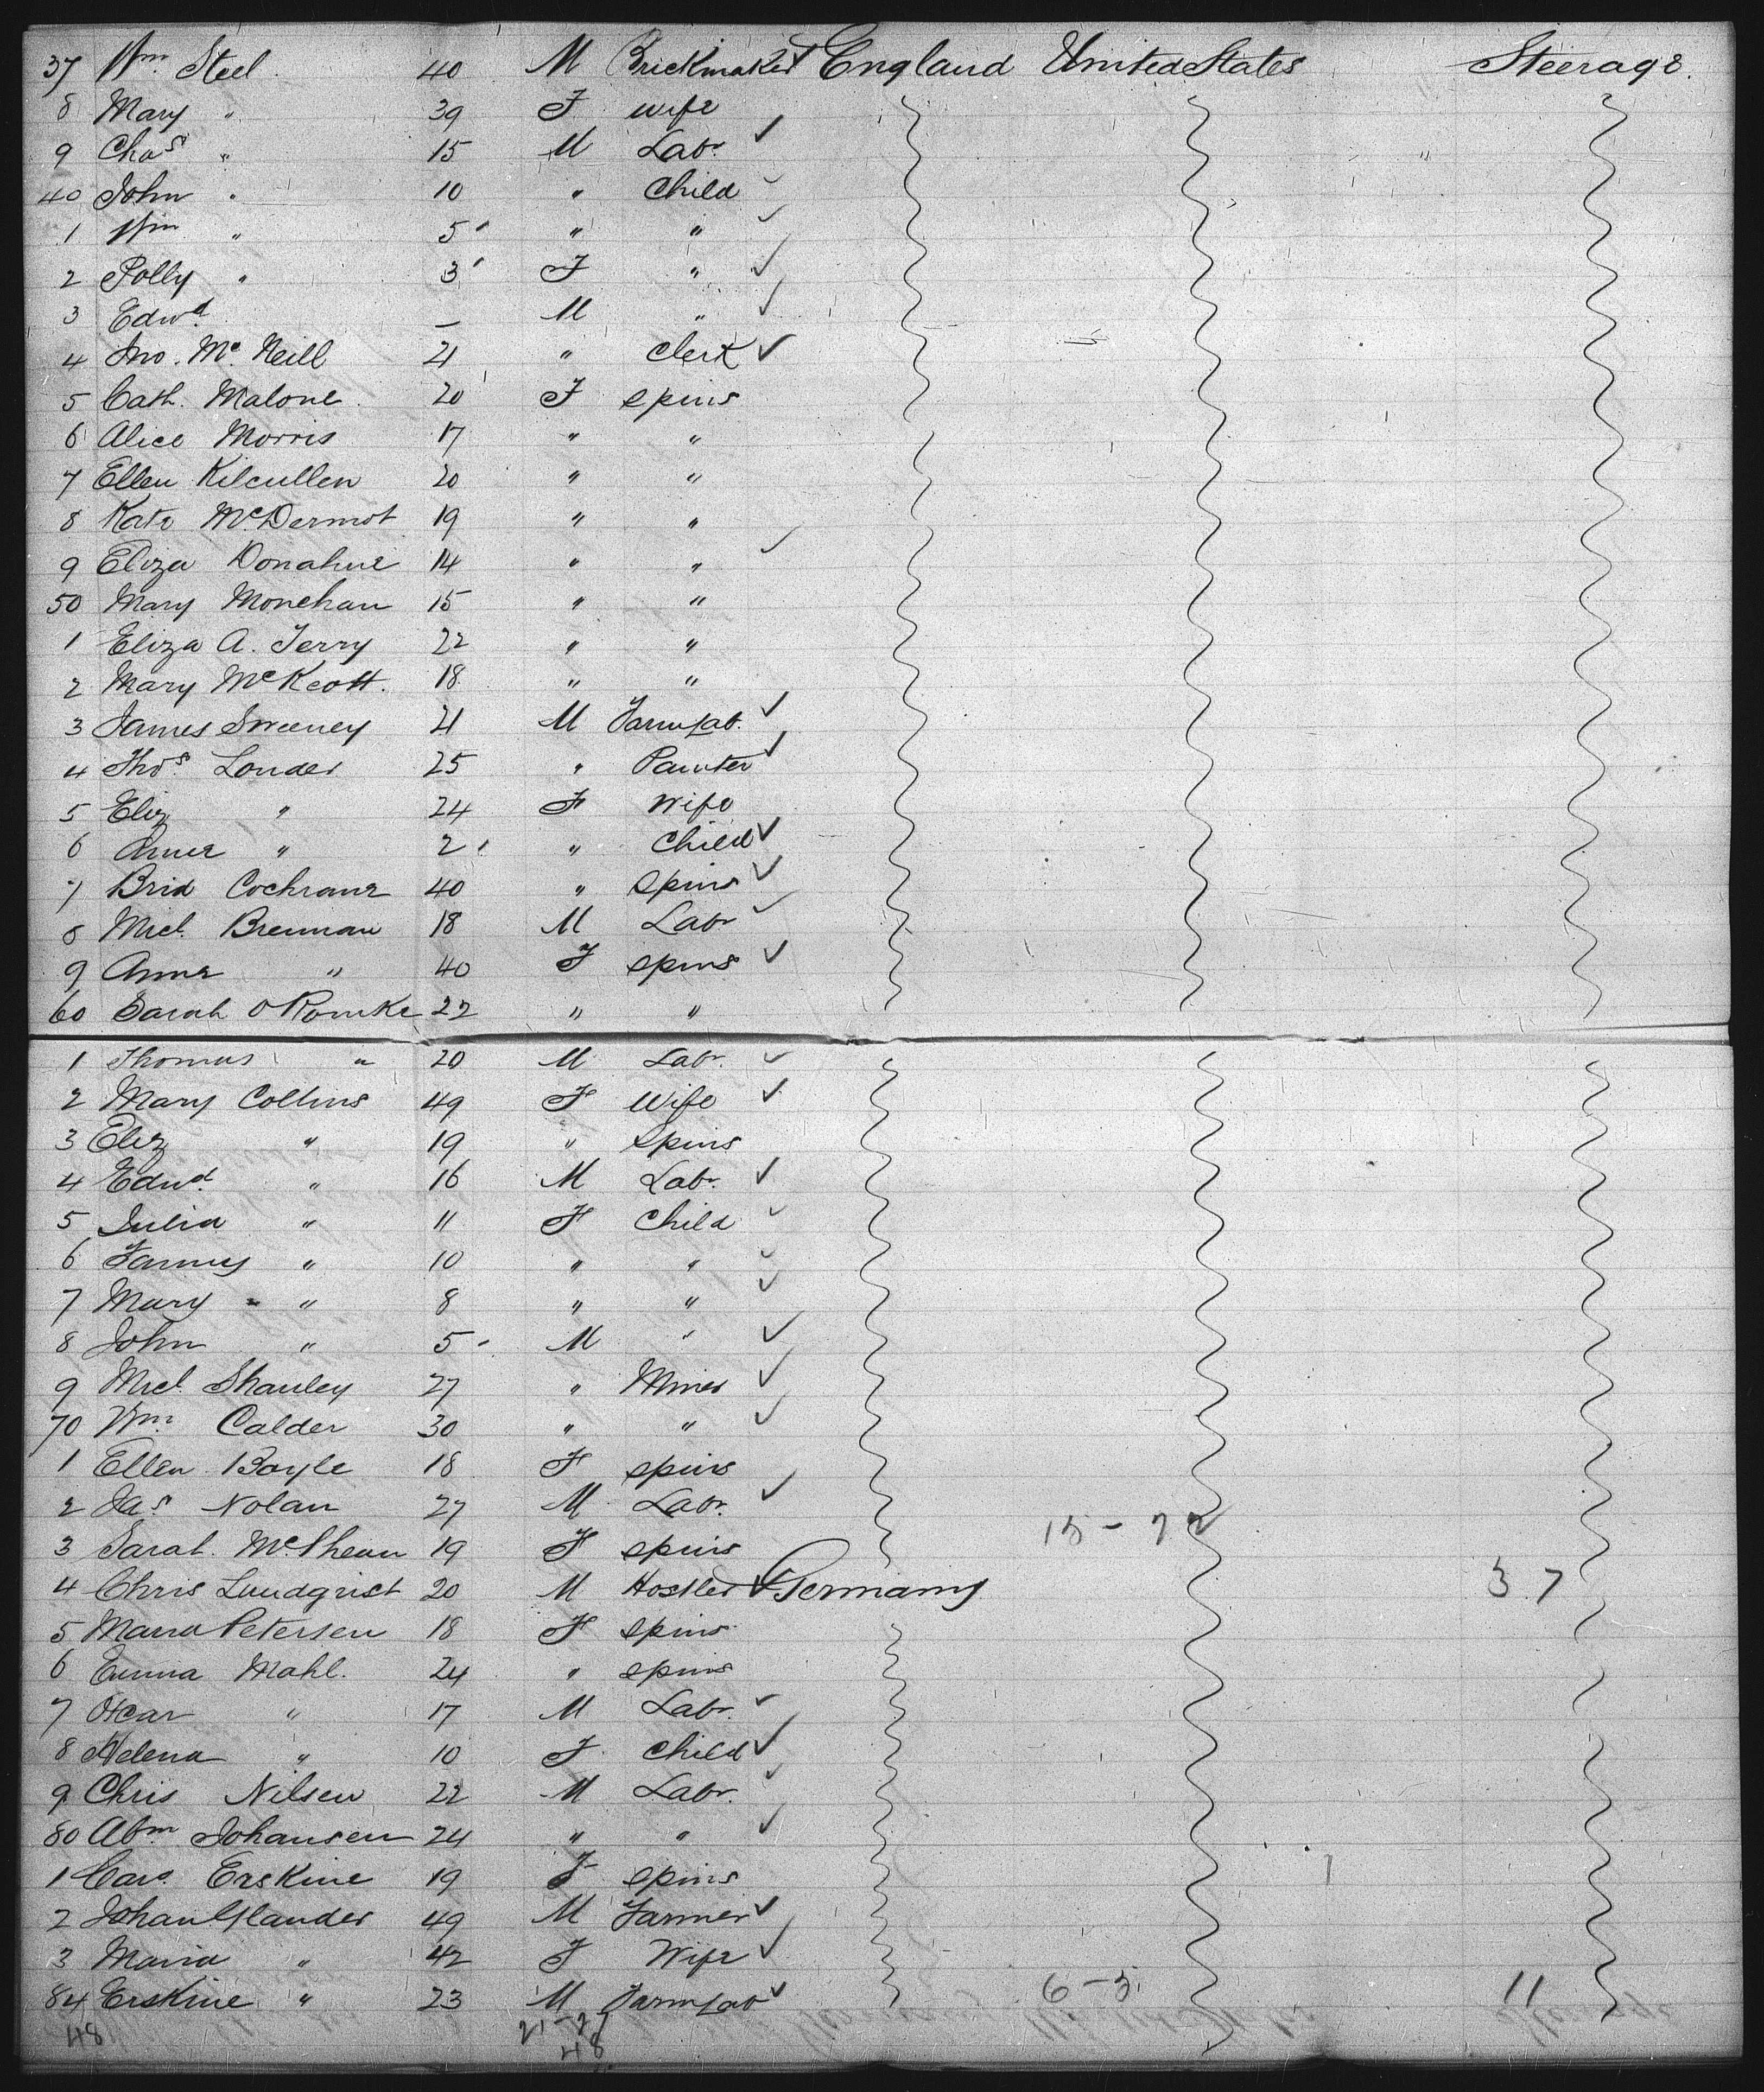 37 Wm Steel. 40 M Brickmaker England United States Steerage.
8 Mary " 39 F wife
9 Chas " 15 M Labr.
40 John " 10 " Child
1 Wm " 5 " "
2 Polly " 3 F "
3 Edwd. — M "
4 Jno. Mc Neill 21 " Clerk
5 Cath. Malone 20 F spins
6 Alice Morris 17 " "
7 Ellen Kilcullen 20 " "
8 Kate McDermot 19 " "
9 Eliza Donahue 14 " "
50 Mary Monehan 15 " "
1 Eliza A. Terry 22 " "
2 Mary McKeott. 18 " "
3 James Sweeney 21 M Farm Lab.
4 Thos. Londer 25 " Painter
5 Eliz " 24 F Wife
6 Anne " 2 " Child
7 Brid Cochrane 40 " Spins
8 Micl. Brennan 18 M Labr
9 Anne " 40 F spins
60 Sarah O'Rourke 22 " "
1 Thomas " 20 M Labr.
2 Mary Collins 49 F Wife
3 Eliz " 19 " spins
4 Edwd. " 16 M Labr.
5 Julia " 11 F Child
6 Fanny " 10 " "
7 Mary " 8 " "
8 John " 5 M "
9 Micl. Shanley 27 " Miner
70 Wm. Calder 30 " "
1 Ellen Boyle 18 F spins
2 Jas. Nolan 27 M Labr.
15 - 22
3 Sarah. 19 F spins
4 Chris Lundqrist 20 M Hostler Germany 37
5 Maria Petersen 18 F spins
6 Emma Mahl. 24 " spins
7 Oscar " 17 M Labr.
8 Helena " 10 F Child
9 Chris Nilsen 22 M Labr.
80 Abm Johansen 24 " "
1 Caro. Erskine 19 F spins
2 Johan Glander 49 M Farmer
3 Maria " 42 F Wife
84 Erskine " 23 M Farm Lab 6-5 11
48 21-27
48